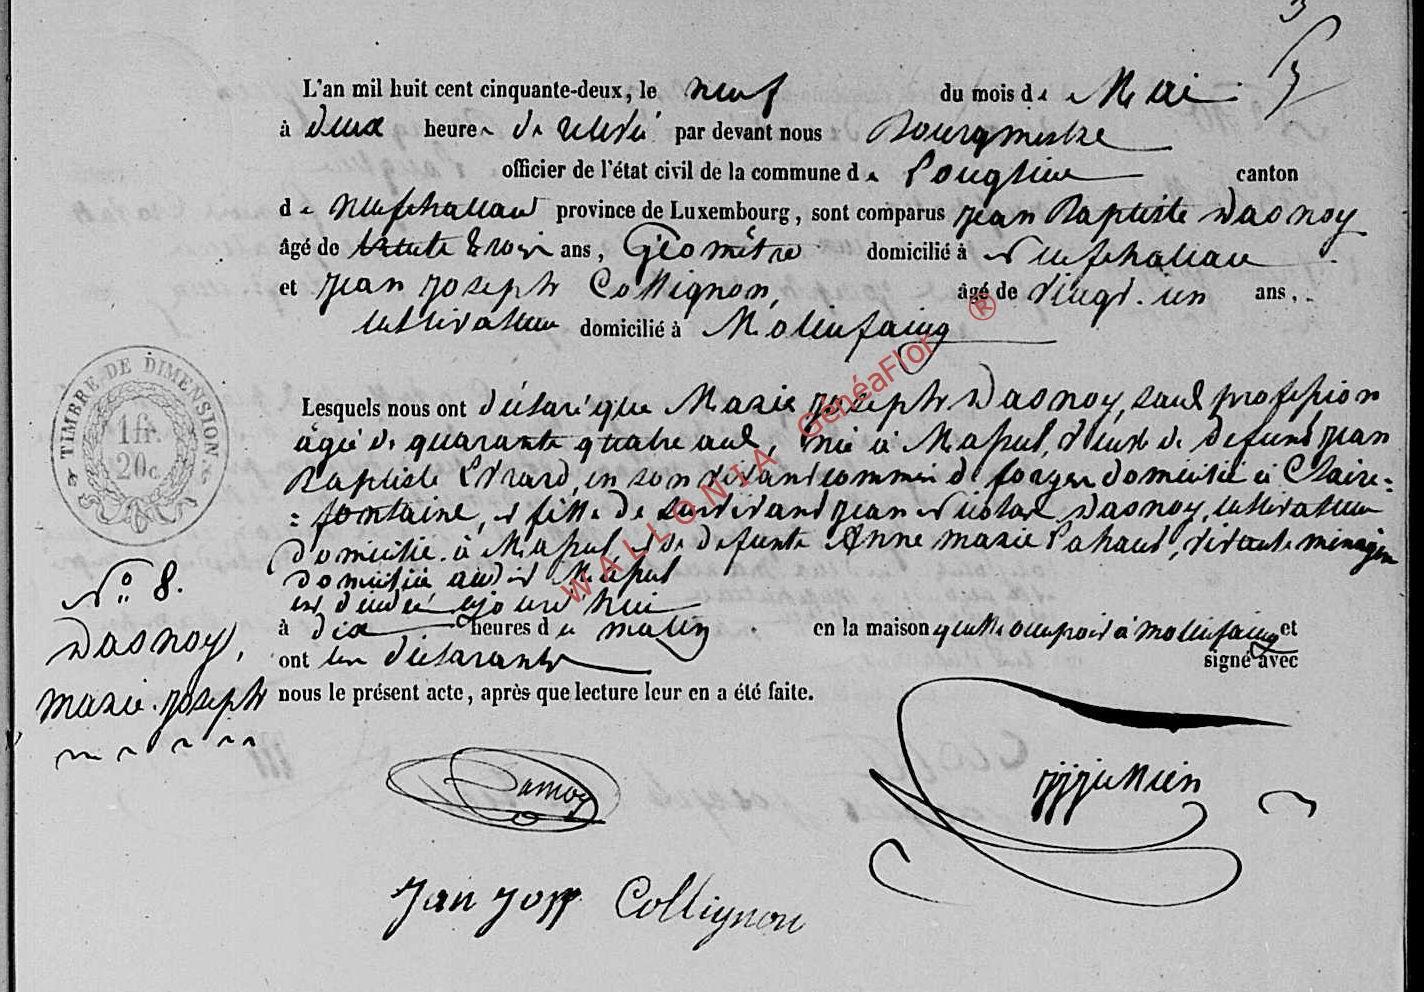 L'an mil huit cent cinquante-deux, le neuf du mois de Mai
à deux heures de relevé par devant nous Bourgmestre
officier de l'état civil de la commune de Longlier canton
de Neufchateau province de Luxembourg, sont comparus Jean Baptiste Dasnoy
âgé de trente trois ans, Géomètre domicilié à Neufchateau
et Jean Joseph Collignon, âgé de vingt-un ans,
cultivateur domicilié à Molinfaing
Lesquels nous ont déclaré que Marie Joseph Dasnoy, sans profession
âgée de quarante quatre ans, née à Massul, veuve de defunt Jean
Baptiste Evrard, en son vivant commis de forges domicilié à Claire=
=fontaine, et fille de survivant Jean Nicolas Dasnoy, cultivateur
domicilié à Massul, et de defunte Anne Marie Lahaut, vivante ménagère
domiciliée audit Massul
est décédée aujourd'hui
à dix heures du matin en la maison qu'elle occupoit à Molinfaing et
ont les déclarants signé avec
nous le présent acte, après que lecture leur en a été faite.
TIMBRE DE DIMENSION
1fr.
20c.
N° 8.
Dasnoy,
Marie-Joseph
Dasnoy
Jean Josph Collignon
WALLONIA GenéaFlor ®